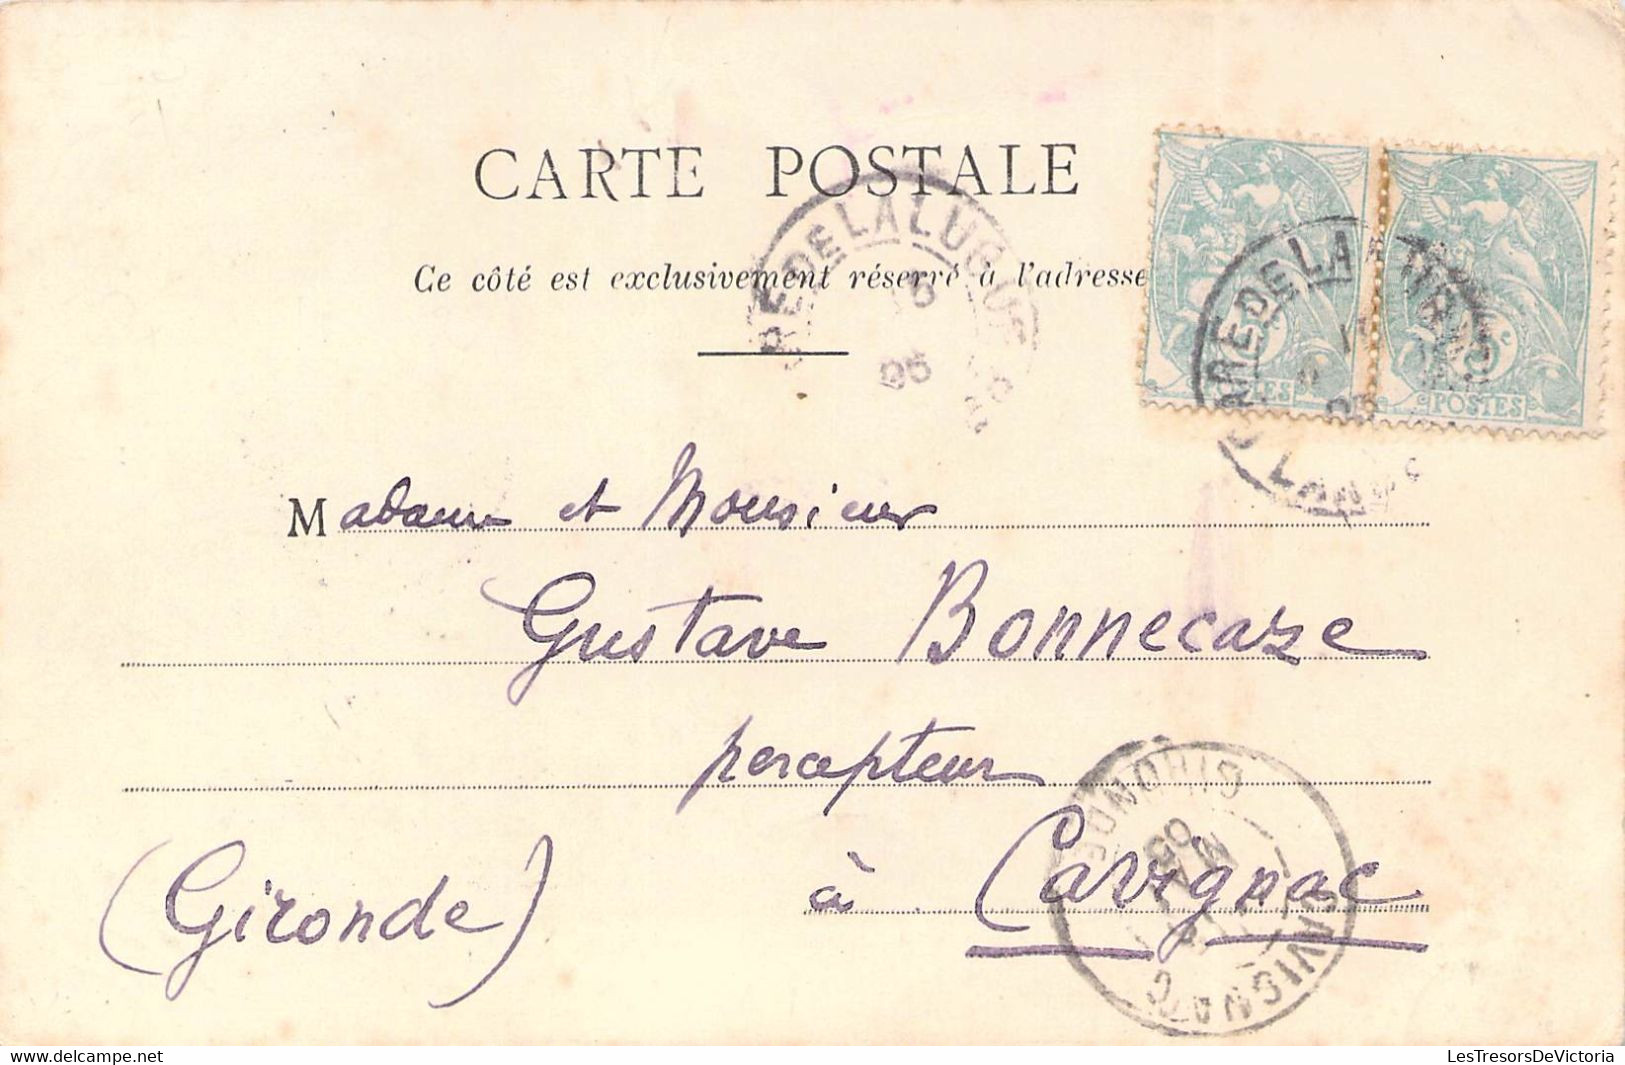 CARTE POSTALE
Ce côté est exclusivement réservé à l'adresse
GARE DE LALUQUE
05
GARE DE LA
LANDES
POSTES
POSTES
5
Madame et Monsieur
Gustave Bonnecaze
percepteur
à Cavignac
(Gironde)
CAVIGNAC
GIRONDE
05
LesTresorsDeVictoria